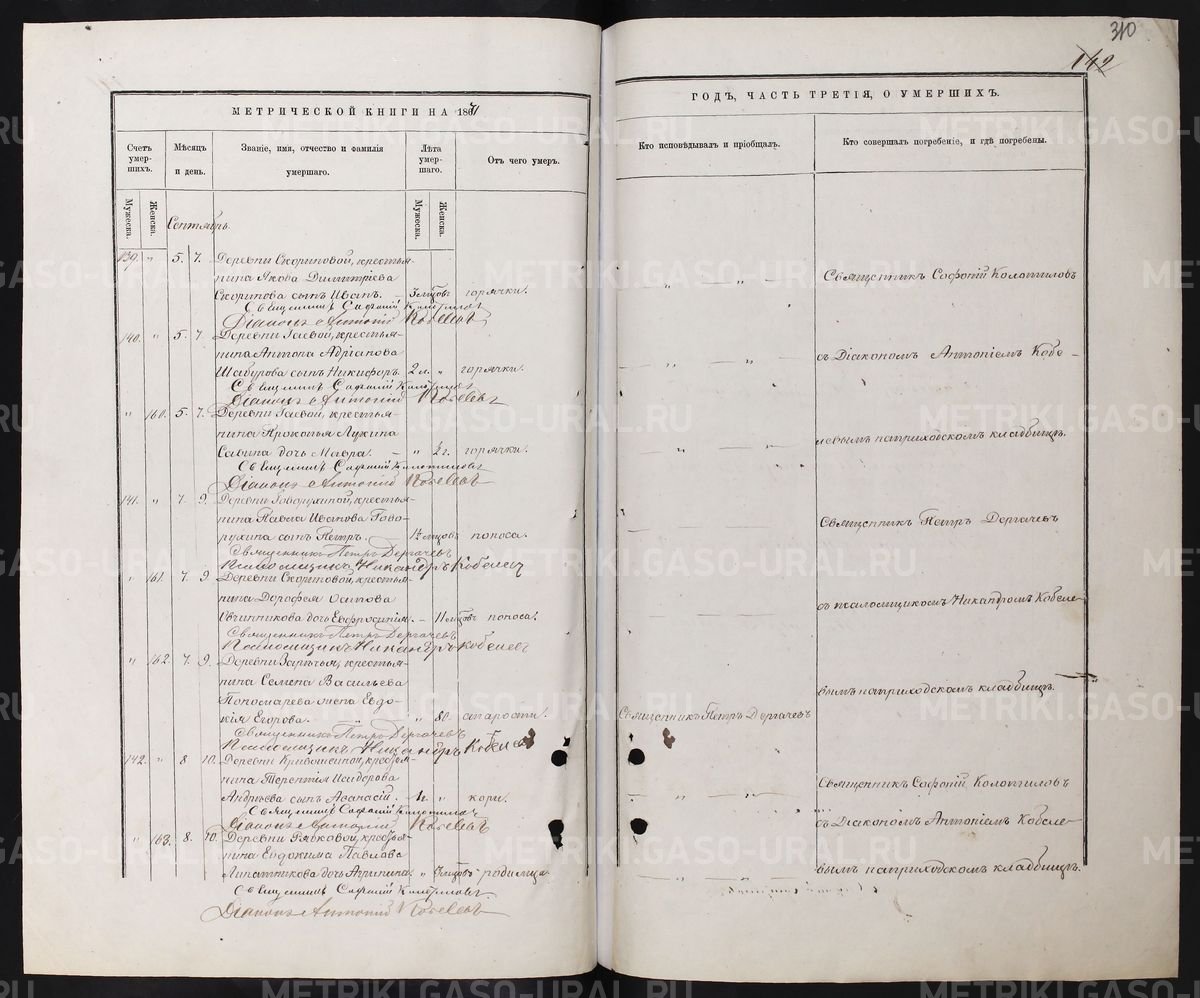 310
142
МЕТРИЧЕСКОЙ КНИГИ НА 1871
Счетъ умер-шихъ.
Мѣсяцъ и день.
Званіе, имя, отчество и фамилія умершаго.
Лѣта умер-шаго.
Отъ чего умеръ.
Мужеска.
Женска.
Мужеска.
Женска.
Сентябрь.
139. " 5. 7. Деревни Скориновой, крестья-
нина Якова Димитріева
Скоринова сынъ Иванъ. – 3 мѣсцовъ горячки.
Священникъ Софоній Колотиловъ
Діаконъ Антоній Кобелевъ
140. " 5. 7. Деревни Гаевой, крестья-
нина Антона Адріанова
Шабурова сынъ Никифоръ. 2 л. " горячки.
Священникъ Софоній Колотиловъ
Діаконъ Антоній Кобелевъ
" 160. 5. 7. Деревни Гаевой, крестья-
нина Прокопья Лукина
Савина дочь Мавра. – " ½ г. горячки.
Священникъ Софоній Колотиловъ
Діаконъ Антоній Кобелевъ
141. " 7. 9. Деревни Говорухиной, крестья-
нина Павла Иванова Гово-
рухина сынъ Петръ. мѣсцовъ поноса.
Священникъ Петръ Дергачевъ
Псаломщикъ Никандръ Кобелевъ
" 161. 7. 9. Деревни Скориновой, крестья-
нина Дорофея Осипова
Овчинникова дочь Евфросинія. – 11 мѣсцовъ поноса.
Священникъ Петръ Дергачевъ
Псаломщикъ Никандръ Кобелевъ
" 162. 7. 9. Деревни Зарѣчья, крестья-
нина Семена Васильева
Пономарева жена Евдо-
кія Егорова. " 80. старости.
Священникъ Петръ Дергачевъ
Псаломщикъ Никандръ Кобелевъ
142. " 8 10. Деревни Кривошеиной, кресьян-
нина Терентія Исидорова
Андреева сынъ Аѳанасій. – 1 г. " кори.
Священникъ Софоній Колотиловъ
Діаконъ Антоній Кобелевъ
" 163. 8. 10. Деревни Рябковой, крестья-
нина Евдокима Павлова
Липатникова дочь Агрипина. " 3 мѣсцовъ родимца.
Священникъ Софоній Колотиловъ
Діаконъ Антоній Кобелевъ
ГОДЪ, ЧАСТЬ ТРЕТІЯ, О УМЕРШИХЪ.
Кто исповѣдывалъ и пріобщалъ.
Кто совершалъ погребеніе, и гдѣ погребены.
Священникъ Софоній Колотиловъ
съ Діакономъ Антоніемъ Кобе-
левымъ на приходскомъ кладбищѣ.
Священникъ Петръ Дергачевъ
съ псаломщикомъ Никандромъ Кобеле-
вымъ на приходскомъ кладбищѣ.
Священникъ Петръ Дергачевъ
Священникъ Софоній Колотиловъ
съ Діакономъ Антоніемъ Кобеле-
вымъ на приходскомъ кладбищѣ.
METRIKI.GASO-URAL.RU